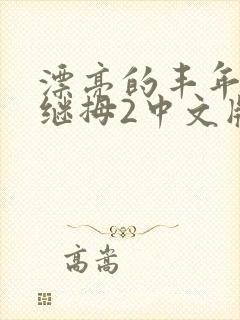 漂亮的丰年
继拇2中文版
高嵩